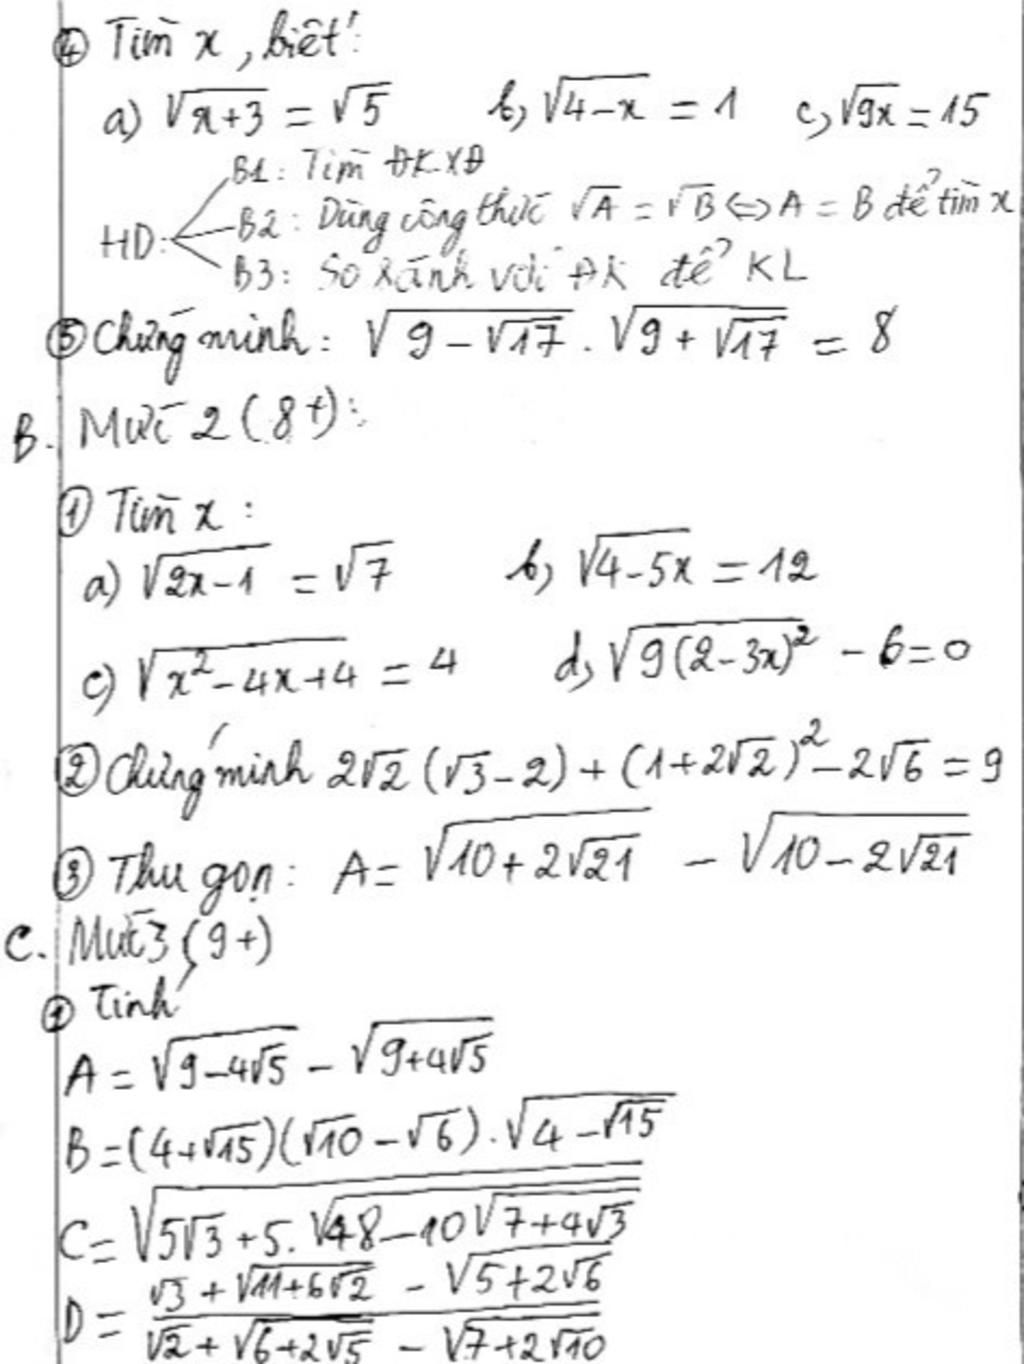 ④ Tìm x, biết:
a) √(x+3) = √5 b, √(4-x) = 1 c, √(9x) = 15
B1: Tìm ĐKXĐ
HD: B2: Dùng công thức √A = √B ⇔ A = B để tìm x
B3: So sánh với ĐK để KL
⑤ Chứng minh: √(9-√17) . √(9+√17) = 8
B. Mức 2 (8+):
① Tìm x:
a) √(2x-1) = √7 b, √(4-5x) = 12
c) √(x²-4x+4) = 4 d, √(9(2-3x)²) - 6 = 0
② Chứng minh 2√2 (√3-2) + (1+2√2)² - 2√6 = 9
③ Thu gọn: A = √(10+2√21) - √(10-2√21)
C. Mức 3 (9+)
① Tính
A = √(9-4√5) - √(9+4√5)
B = (4+√15)(√10-√6).√(4-√15)
C = √(5√3+5.√(48-10√(7+4√3)))
D = (√3+√(11+6√2) - √(5+2√6))/(√2+√(6+2√5) - √(7+2√10))